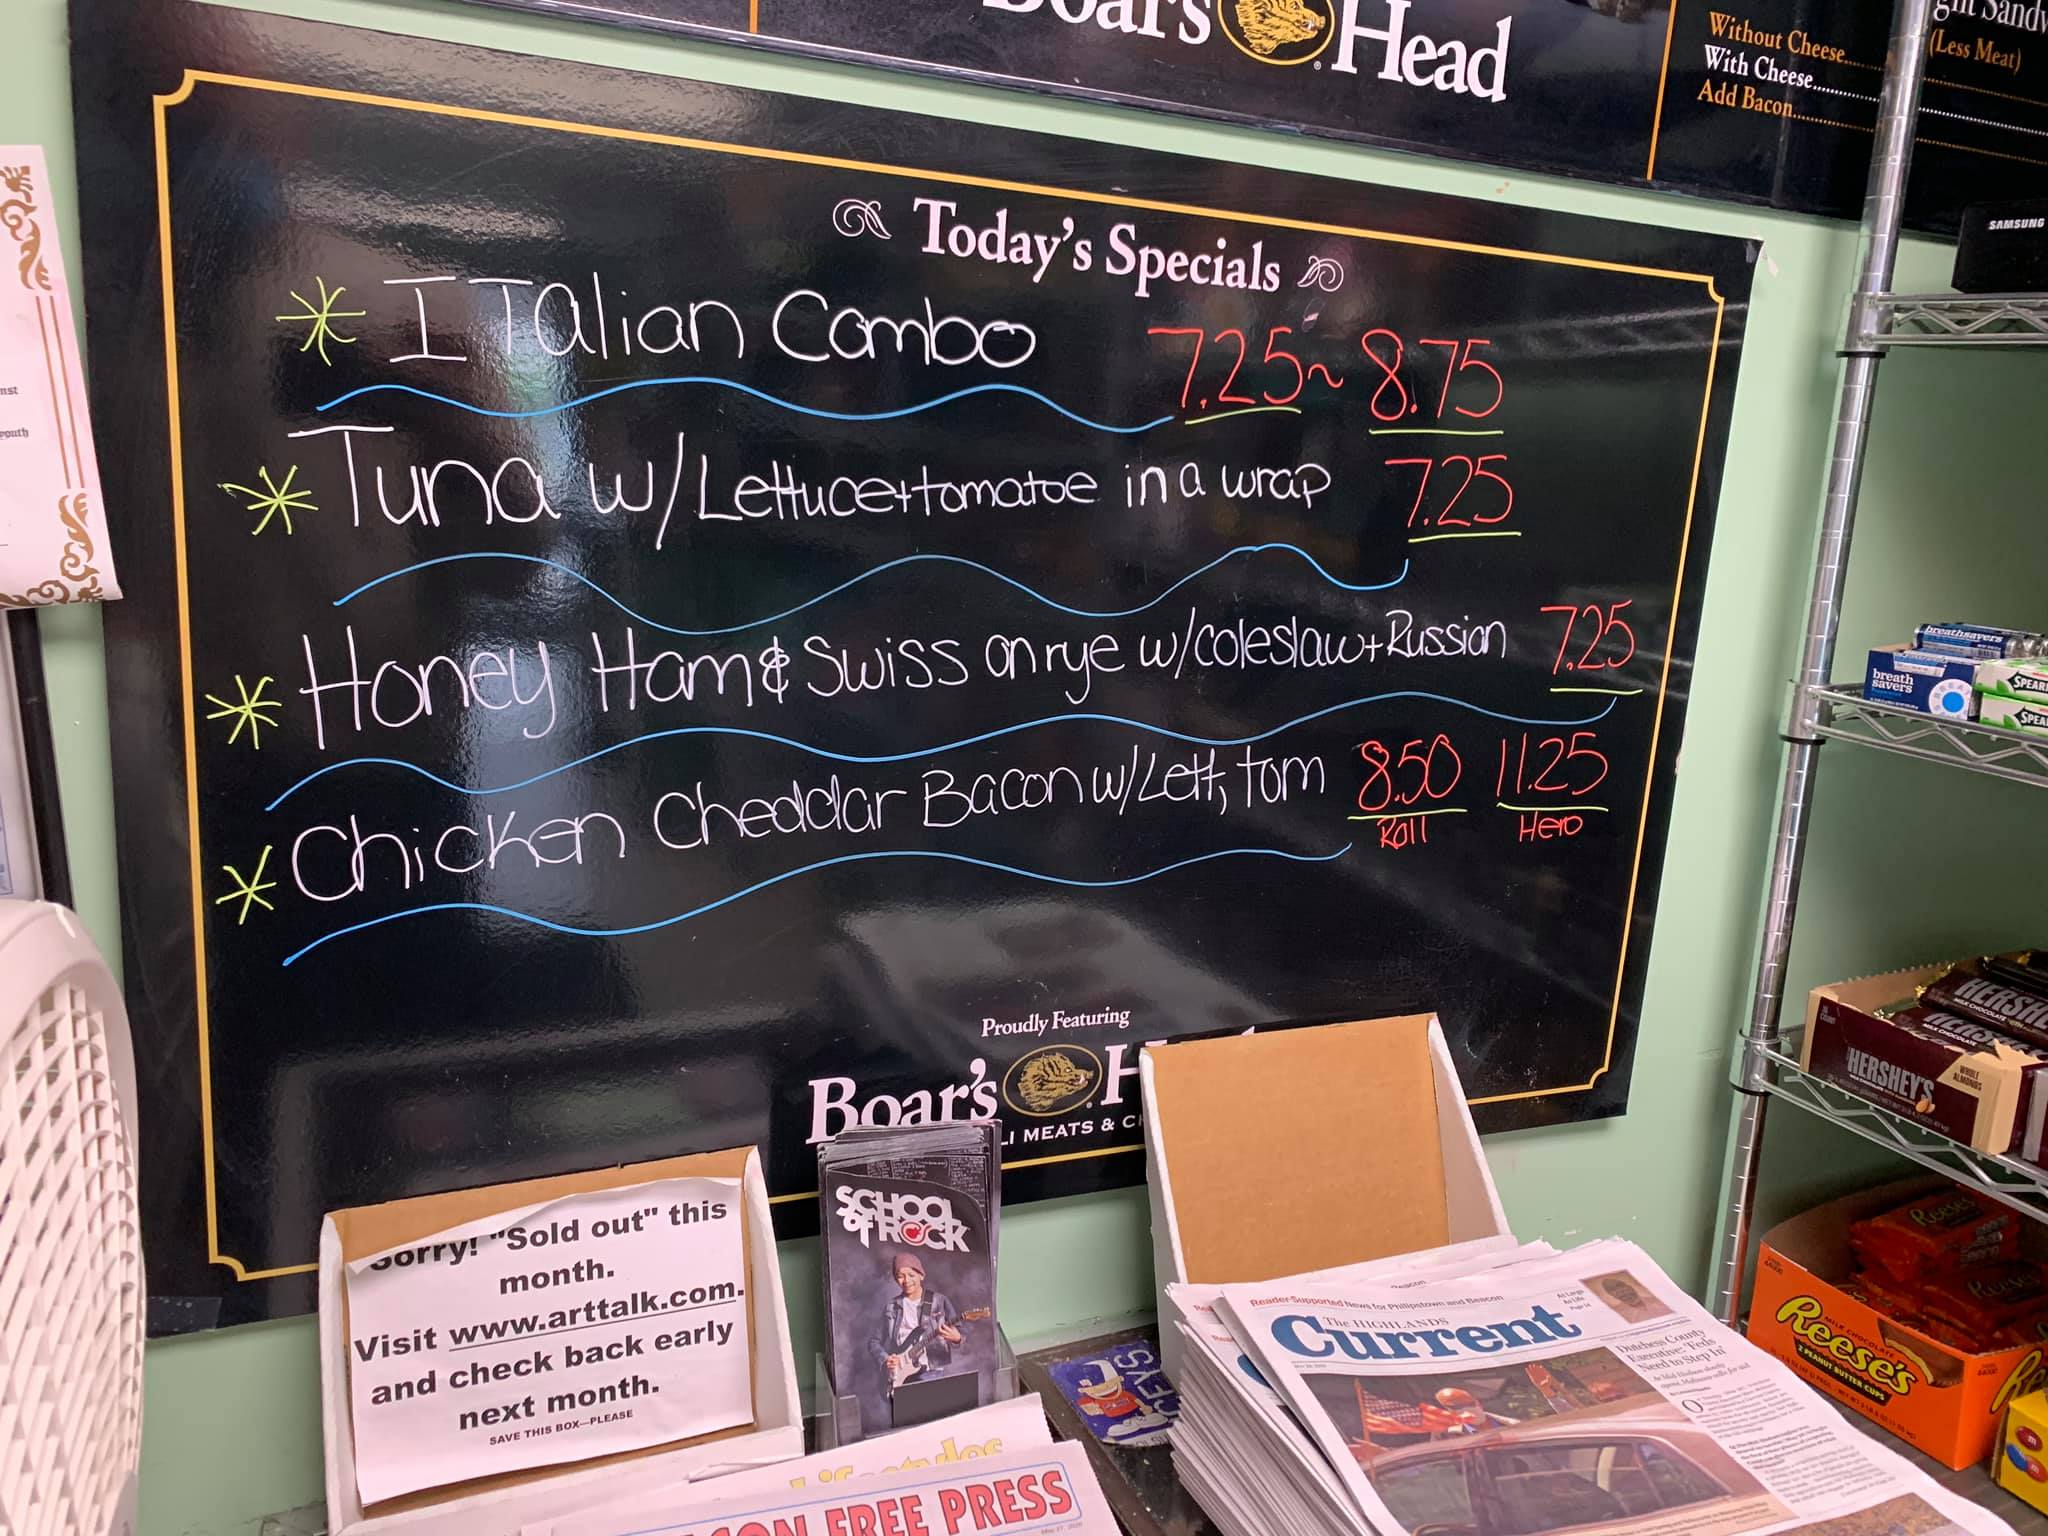 Boar's Head
ght Sandw
(Less Meat)
Without Cheese
With Cheese
Add Bacon
SAMSUNG
Today's Specials
ITalian Combo 7.25 ~ 8.75
Tuna w/Lettuce+tomatoe in a wrap 7.25
Honey Ham & Swiss on rye w/coleslaw+Russian 7.25
Chicken Cheddar Bacon w/Lett, Tom 8.50 11.25
Roll Hero
Proudly Featuring
Boar's H
LI MEATS & CH
breathsavers
breath
savers
SPEAR
SPEA
HERSHEY'S
WHOLE
ALMONDS
Reese's
MILK CHOCOLATE
Reese's
2 PEANUT BUTTER CUPS
Sorry! "Sold out" this
month.
Visit www.arttalk.com.
and check back early
next month.
SAVE THIS BOX—PLEASE
SCHOOL
OF ROCK
Lifestyles
CON FREE PRESS
Reader-Supported News for Philipstown and Beacon
The HIGHLANDS
Current
At Large
Dutchess County
Executive: 'Feds
Need to Step In'